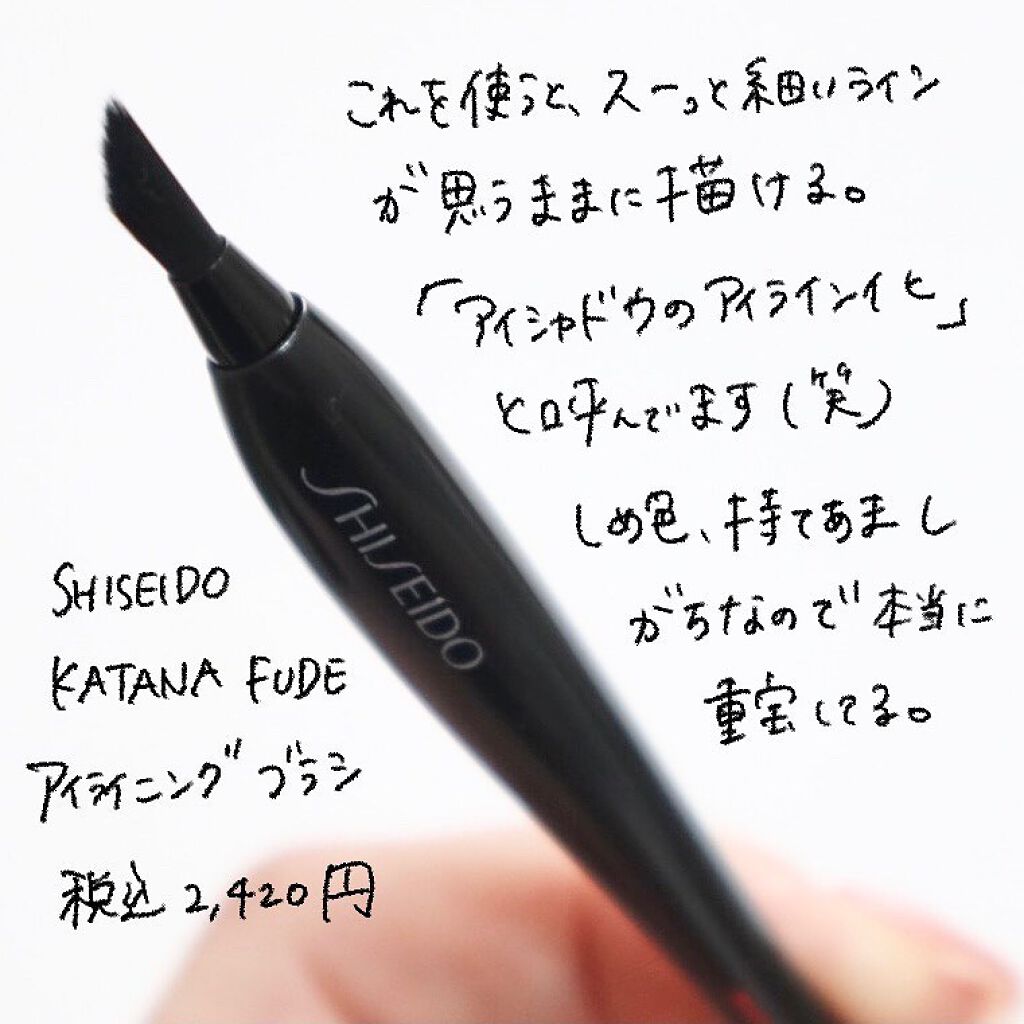 これを使うと、スーっと細いライン
が思うままに描ける。
「アイシャドウのアイライン化」
と呼んでます(笑)
しめ色、持てあまし
がちなので本当に
重宝してる。
SHISEIDO
SHISEIDO
KATANA FUDE
アイライニングブラシ
税込2,420円